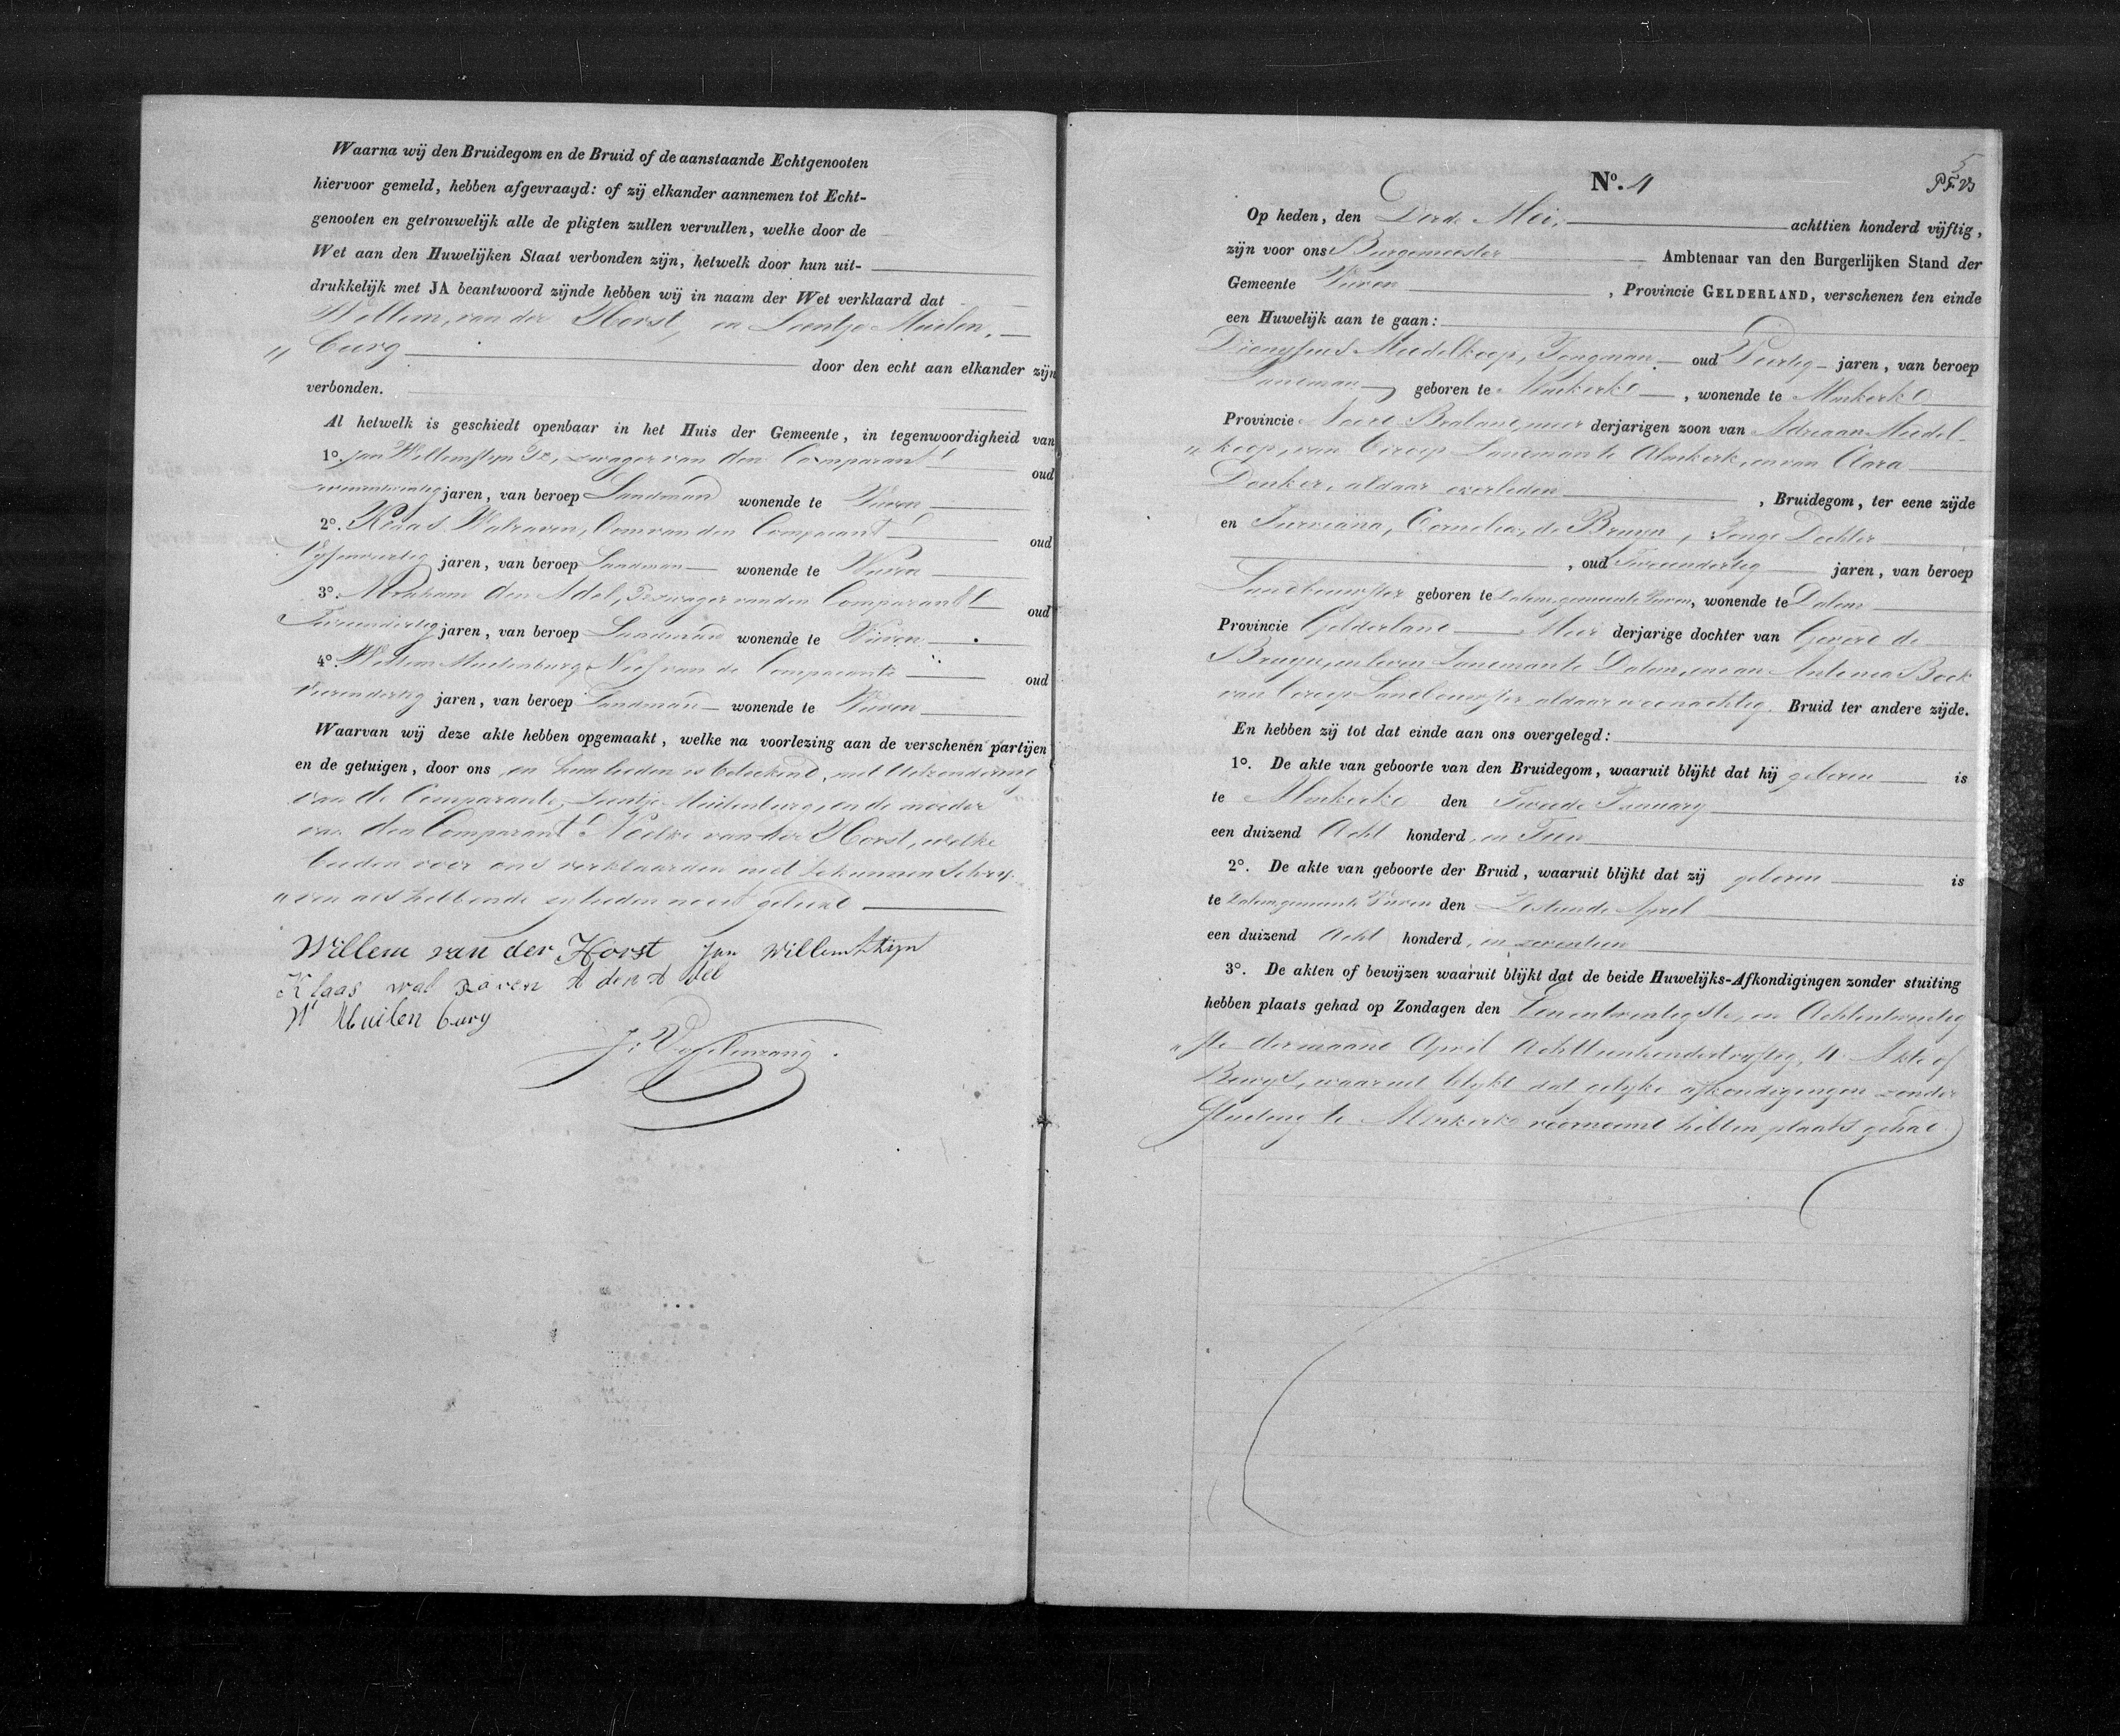 Waarna wij den Bruidegom en de Bruid of de aanstaande Echtgenooten
hiervoor gemeld, hebben afgevraagd: of zij elkander aannemen tot Echt-
genooten en getrouwelijk alle de pligten zullen vervullen, welke door de
Wet aan den Huwelijken Staat verbonden zijn, hetwelk door hun uit-
drukkelijk met JA beantwoord zijnde hebben wij in naam der Wet verklaard dat
Willem, van der Horst, en Leentje Muilen,
" burg door den echt aan elkander zijn
verbonden.
Al hetwelk is geschiedt openbaar in het Huis der Gemeente, in tegenwoordigheid van
1o. Jan Willemstyn zwager van den Comparant oud
jaren, van beroep Landman wonende te Vuren
2o. Klaas Walraven, Oom van den Comparant oud
Vyfenveertig jaren, van beroep Landman wonende te Vuren
3o. Abraham den Adel, zwager van den Comparant oud
jaren, van beroep Landman wonende te Vuren
4o. Willem Muilenburg Neef van de Comparante oud
Vierendertig jaren, van beroep Landman wonende te Vuren
Waarvan wij deze akte hebben opgemaakt, welke na voorlezing aan de verschenen partijen
en de getuigen, door ons en hun lieden is geteekend, met uitzondering
van de Comparante, Leentje Muilenburg, en de moeder
van den Comparant van der Horst, welke
beiden voor ons verklaarden niet te kunnen Schry
" ven als hebbende zylieden nooit geleerd
Willem van der Horst Jan Willemstyn
Klaas wal raven A den A del
W Muilen burg
J. Vogelenzang.
5
No. 4
Op heden, den Derde Mei, achttien honderd vijftig,
zijn voor ons Burgemeester Ambtenaar van den Burgerlijken Stand der
Gemeente Vuren, Provincie GELDERLAND, verschenen ten einde
een Huwelijk aan te gaan:
Dionysius Middelkoop, Jongman oud Veertig jaren, van beroep
Landman geboren te Almkerk, wonende te Almkerk
Provincie Noord Braband, meer derjarigen zoon van Adriaan Middel-
" koop, van beroep Landman te Almkerk, en van Clara
Donker, aldaar overleden, Bruidegom, ter eene zijde
en Jurriana, Cornelia, de Bruyn, Jonge Dochter
, oud Tweendertig jaren, van beroep
Landbouwster geboren te Dalem gemeente Vuren, wonende te Dalem
Provincie Gelderland Meer derjarige dochter van Gerard de
Bruyn, in leven Landman te Dalem, en van Antonia Bock
van beroep Landbouwster aldaar woonachtig. Bruid ter andere zijde.
En hebben zij tot dat einde aan ons overgelegd:
1o. De akte van geboorte van den Bruidegom, waaruit blijkt dat hij geboren is
te Almkerk den Tweede January
een duizend Acht honderd, en Tien
2o. De akte van geboorte der Bruid, waaruit blijkt dat zij geboren is
te Dalem gemeente Vuren den Zestiende April
een duizend Acht honderd, en zeventien
3o. De akten of bewijzen waaruit blijkt dat de beide Huwelijks-Afkondigingen zonder stuiting
hebben plaats gehad op Zondagen den Eenentwintigste, en Achtentwintig
" ste der maand April Achttienhonderdvyftig, 4. Akte of
Bewys, waaruit blykt dat gelyke afkondigingen zonder
stuiting te Almkerk voornoemd hebben plaats gehad